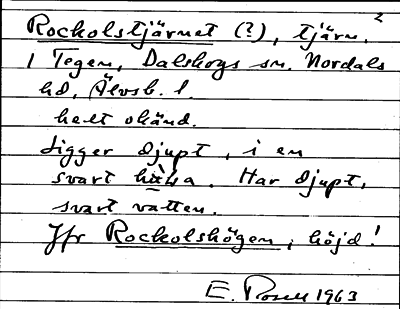 2
Rockolstjärnet (?), tjärn.
i Tegen, Dalskogs sn. Nordals
hd, Älvsb. l.
helt okänd.
Ligger djupt, i en
svart håla. Har djupt,
svart vatten.
Jfr Rockolshögen, höjd!
E. Rosell 1963